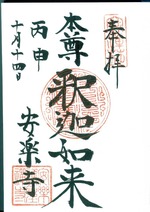 奉拝
本尊
釈迦如来
安楽寺
丙申
十月十四日